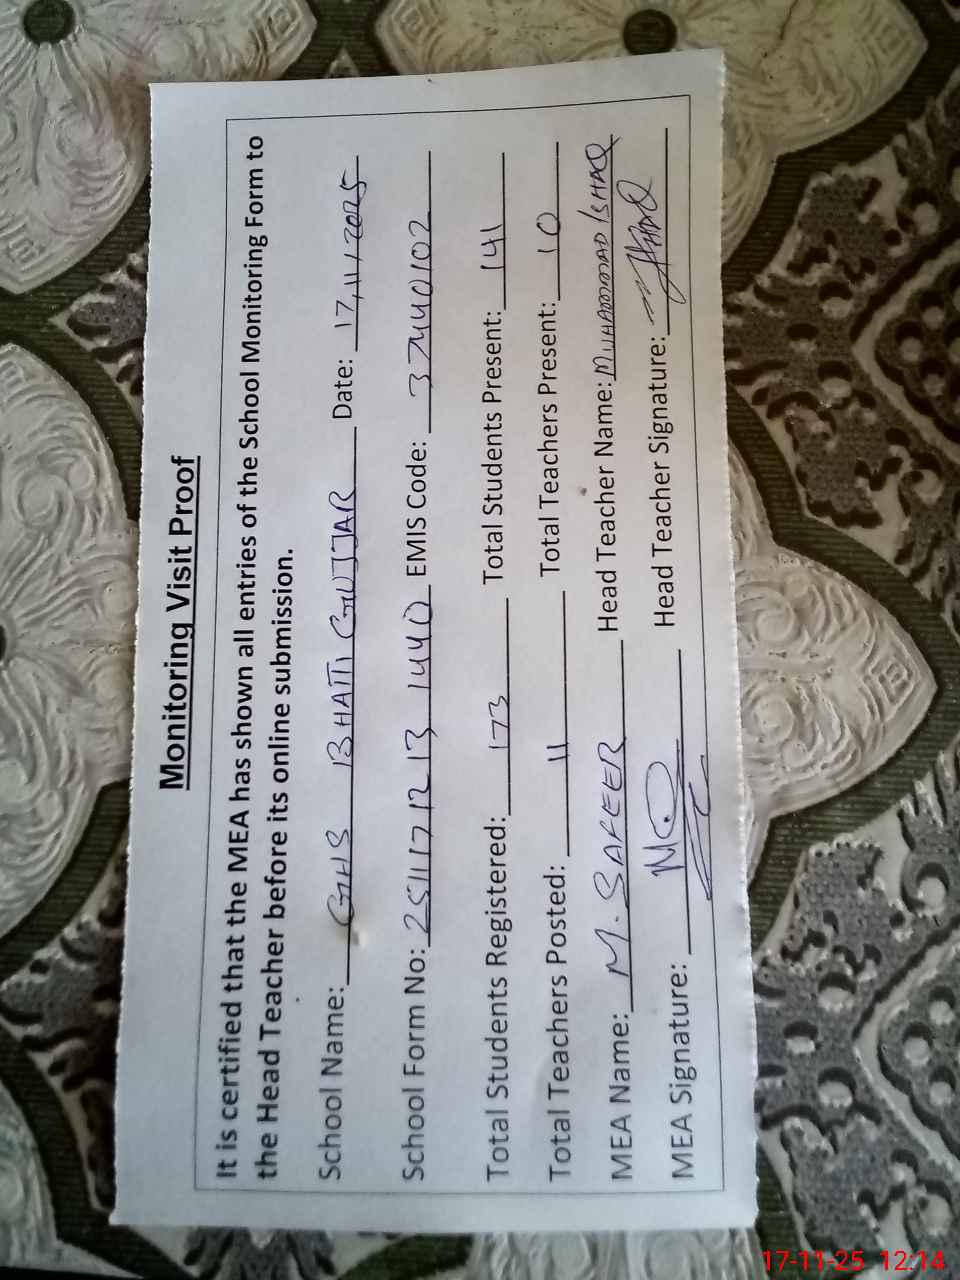 Monitoring Visit Proof
It is certified that the MEA has shown all entries of the School Monitoring Form to
the Head Teacher before its online submission.
School Name: GHS BHATI GUJJAR Date: 17,11,2025
School Form No: 251117 12 13 1440 EMIS Code: 37440102
Total Students Registered: 173 Total Students Present: 141
Total Teachers Posted: 11 Total Teachers Present: 10
MEA Name: M. SAFEER Head Teacher Name: MUHAMMAD ISHAQ
MEA Signature: Head Teacher Signature:
17-11-25 12:14